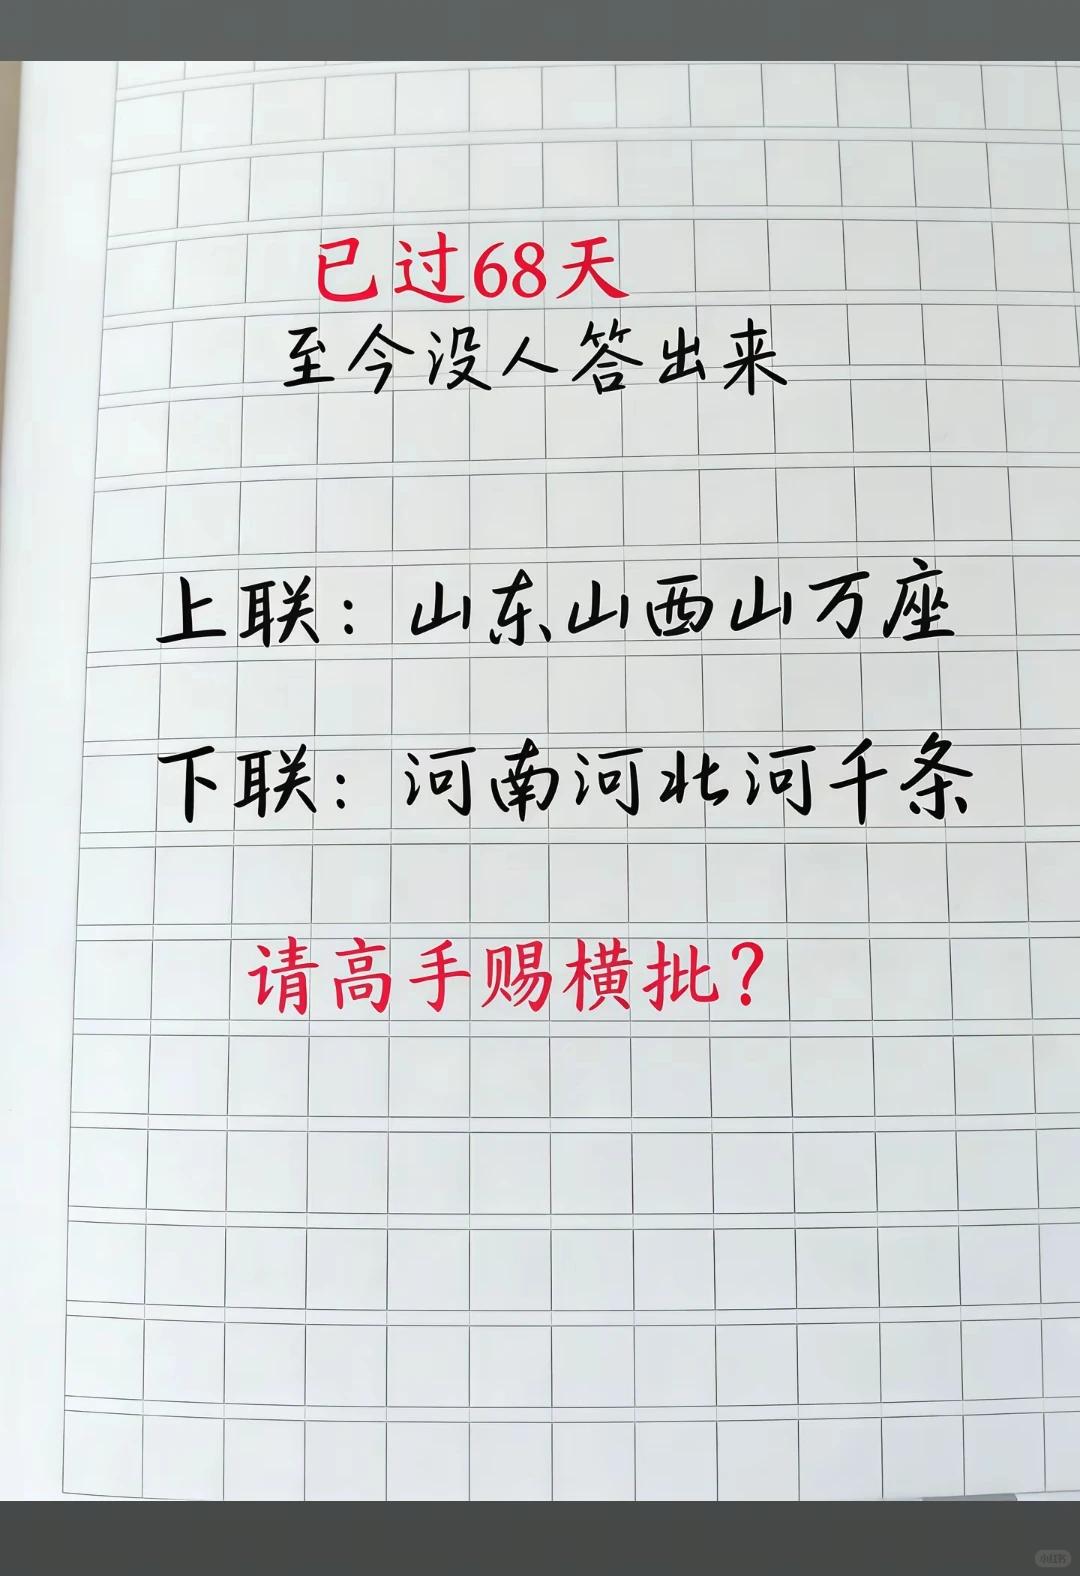 已过68天
至今没人答出来
上联：山东山西山万座
下联：河南河北河千条
请高手赐横批？
小红书